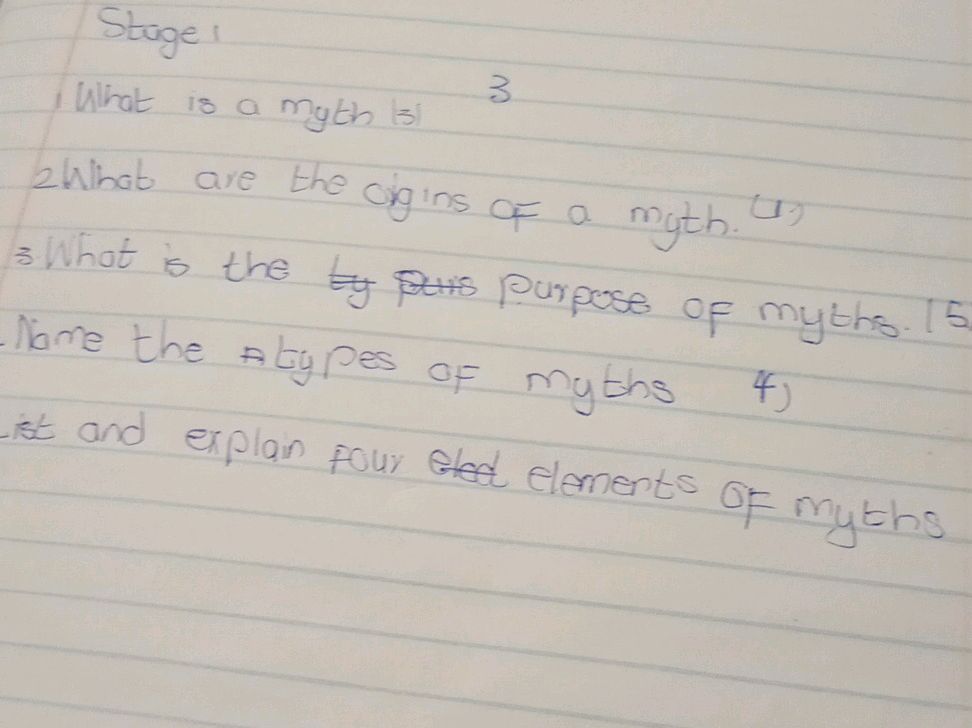 Stage 1
3
1 What is a myth |3|
2 What are the origins of a myth. (1)
3 What is the purpose of myths. (5
Name the types of myths 4)
List and explain four elements of myths